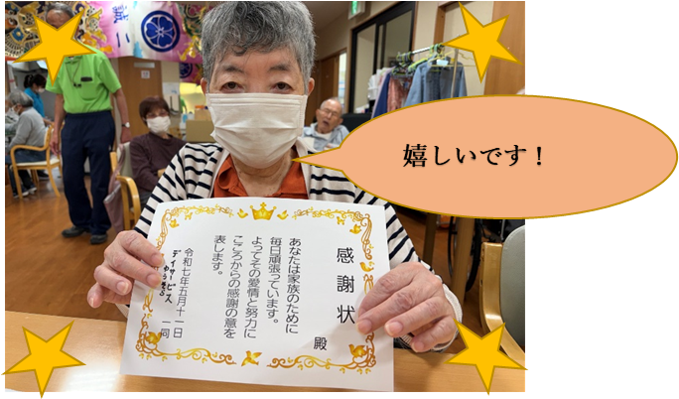 誠一
嬉しいです！
感謝状
殿
あなたは家族のために
毎日頑張っています。
よってその愛情と努力に
こころからの感謝の意を
表します。
令和七年五月十一日
デイサービス
一同